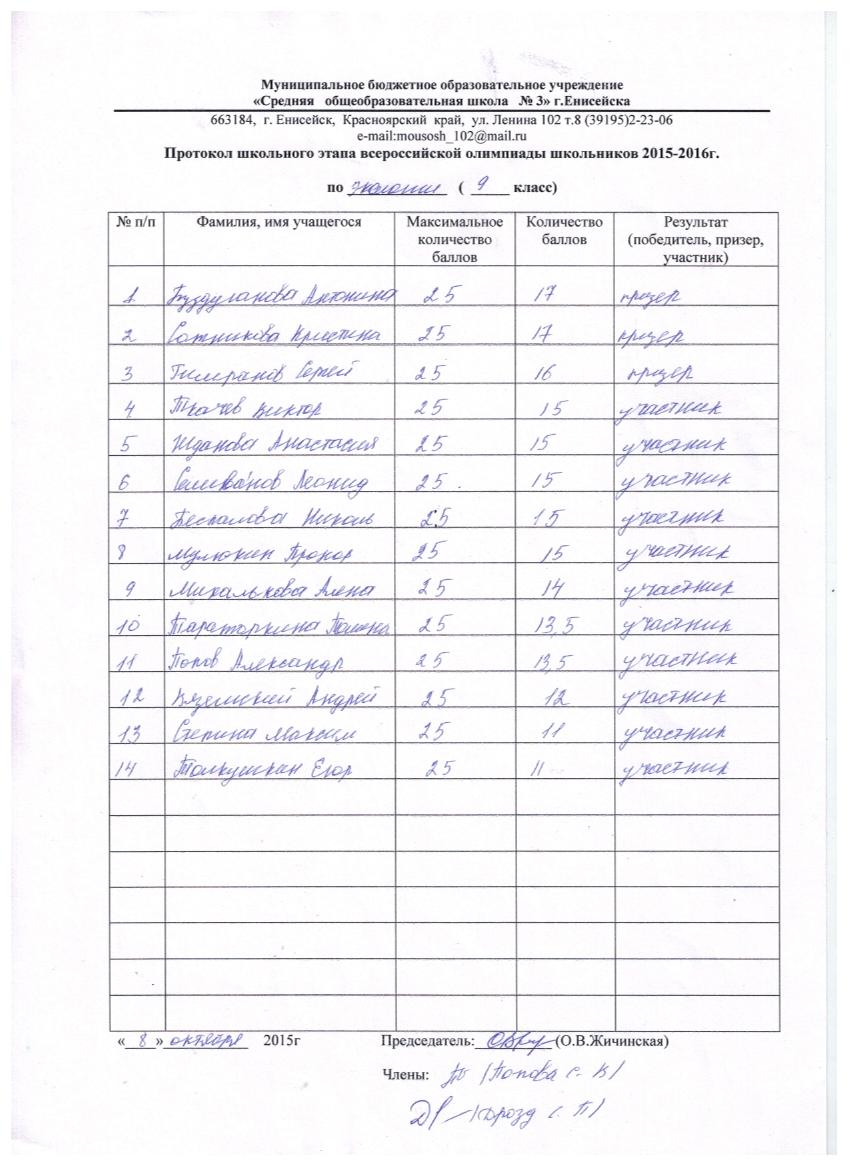 Муниципальное бюджетное образовательное учреждение
«Средняя общеобразовательная школа № 3» г.Енисейска
663184, г. Енисейск, Красноярский край, ул. Ленина 102 т.8 (39195)2-23-06
e-mail:mousosh_102@mail.ru
Протокол школьного этапа всероссийской олимпиады школьников 2015-2016г.
по экологии ( 9 класс)
№ п/п Фамилия, имя учащегося Максимальное количество баллов Количество баллов Результат (победитель, призер, участник)
1 Буздуганова Антонина 25 17 призер
2 Сотникова Кристина 25 17 призер
3 Тимиранов Сергей 25 16 призер
4 Ткачев Виктор 25 15 участник
5 Жданова Анастасия 25 15 участник
6 Селиванов Леонид 25 15 участник
7 Беспалова Николь 25 15 участник
8 Мулюкин Прохор 25 15 участник
9 Михалькова Алена 25 14 участник
10 Тараторкина Полина 25 13,5 участник
11 Попов Александр 25 13,5 участник
12 Вяземский Андрей 25 12 участник
13 Степина Максим 25 11 участник
14 Толкушкин Егор 25 11 участник
« 8 » октября 2015г Председатель: (О.В.Жичинская)
Члены: /Попова С. В/
/Дрозд С. П/